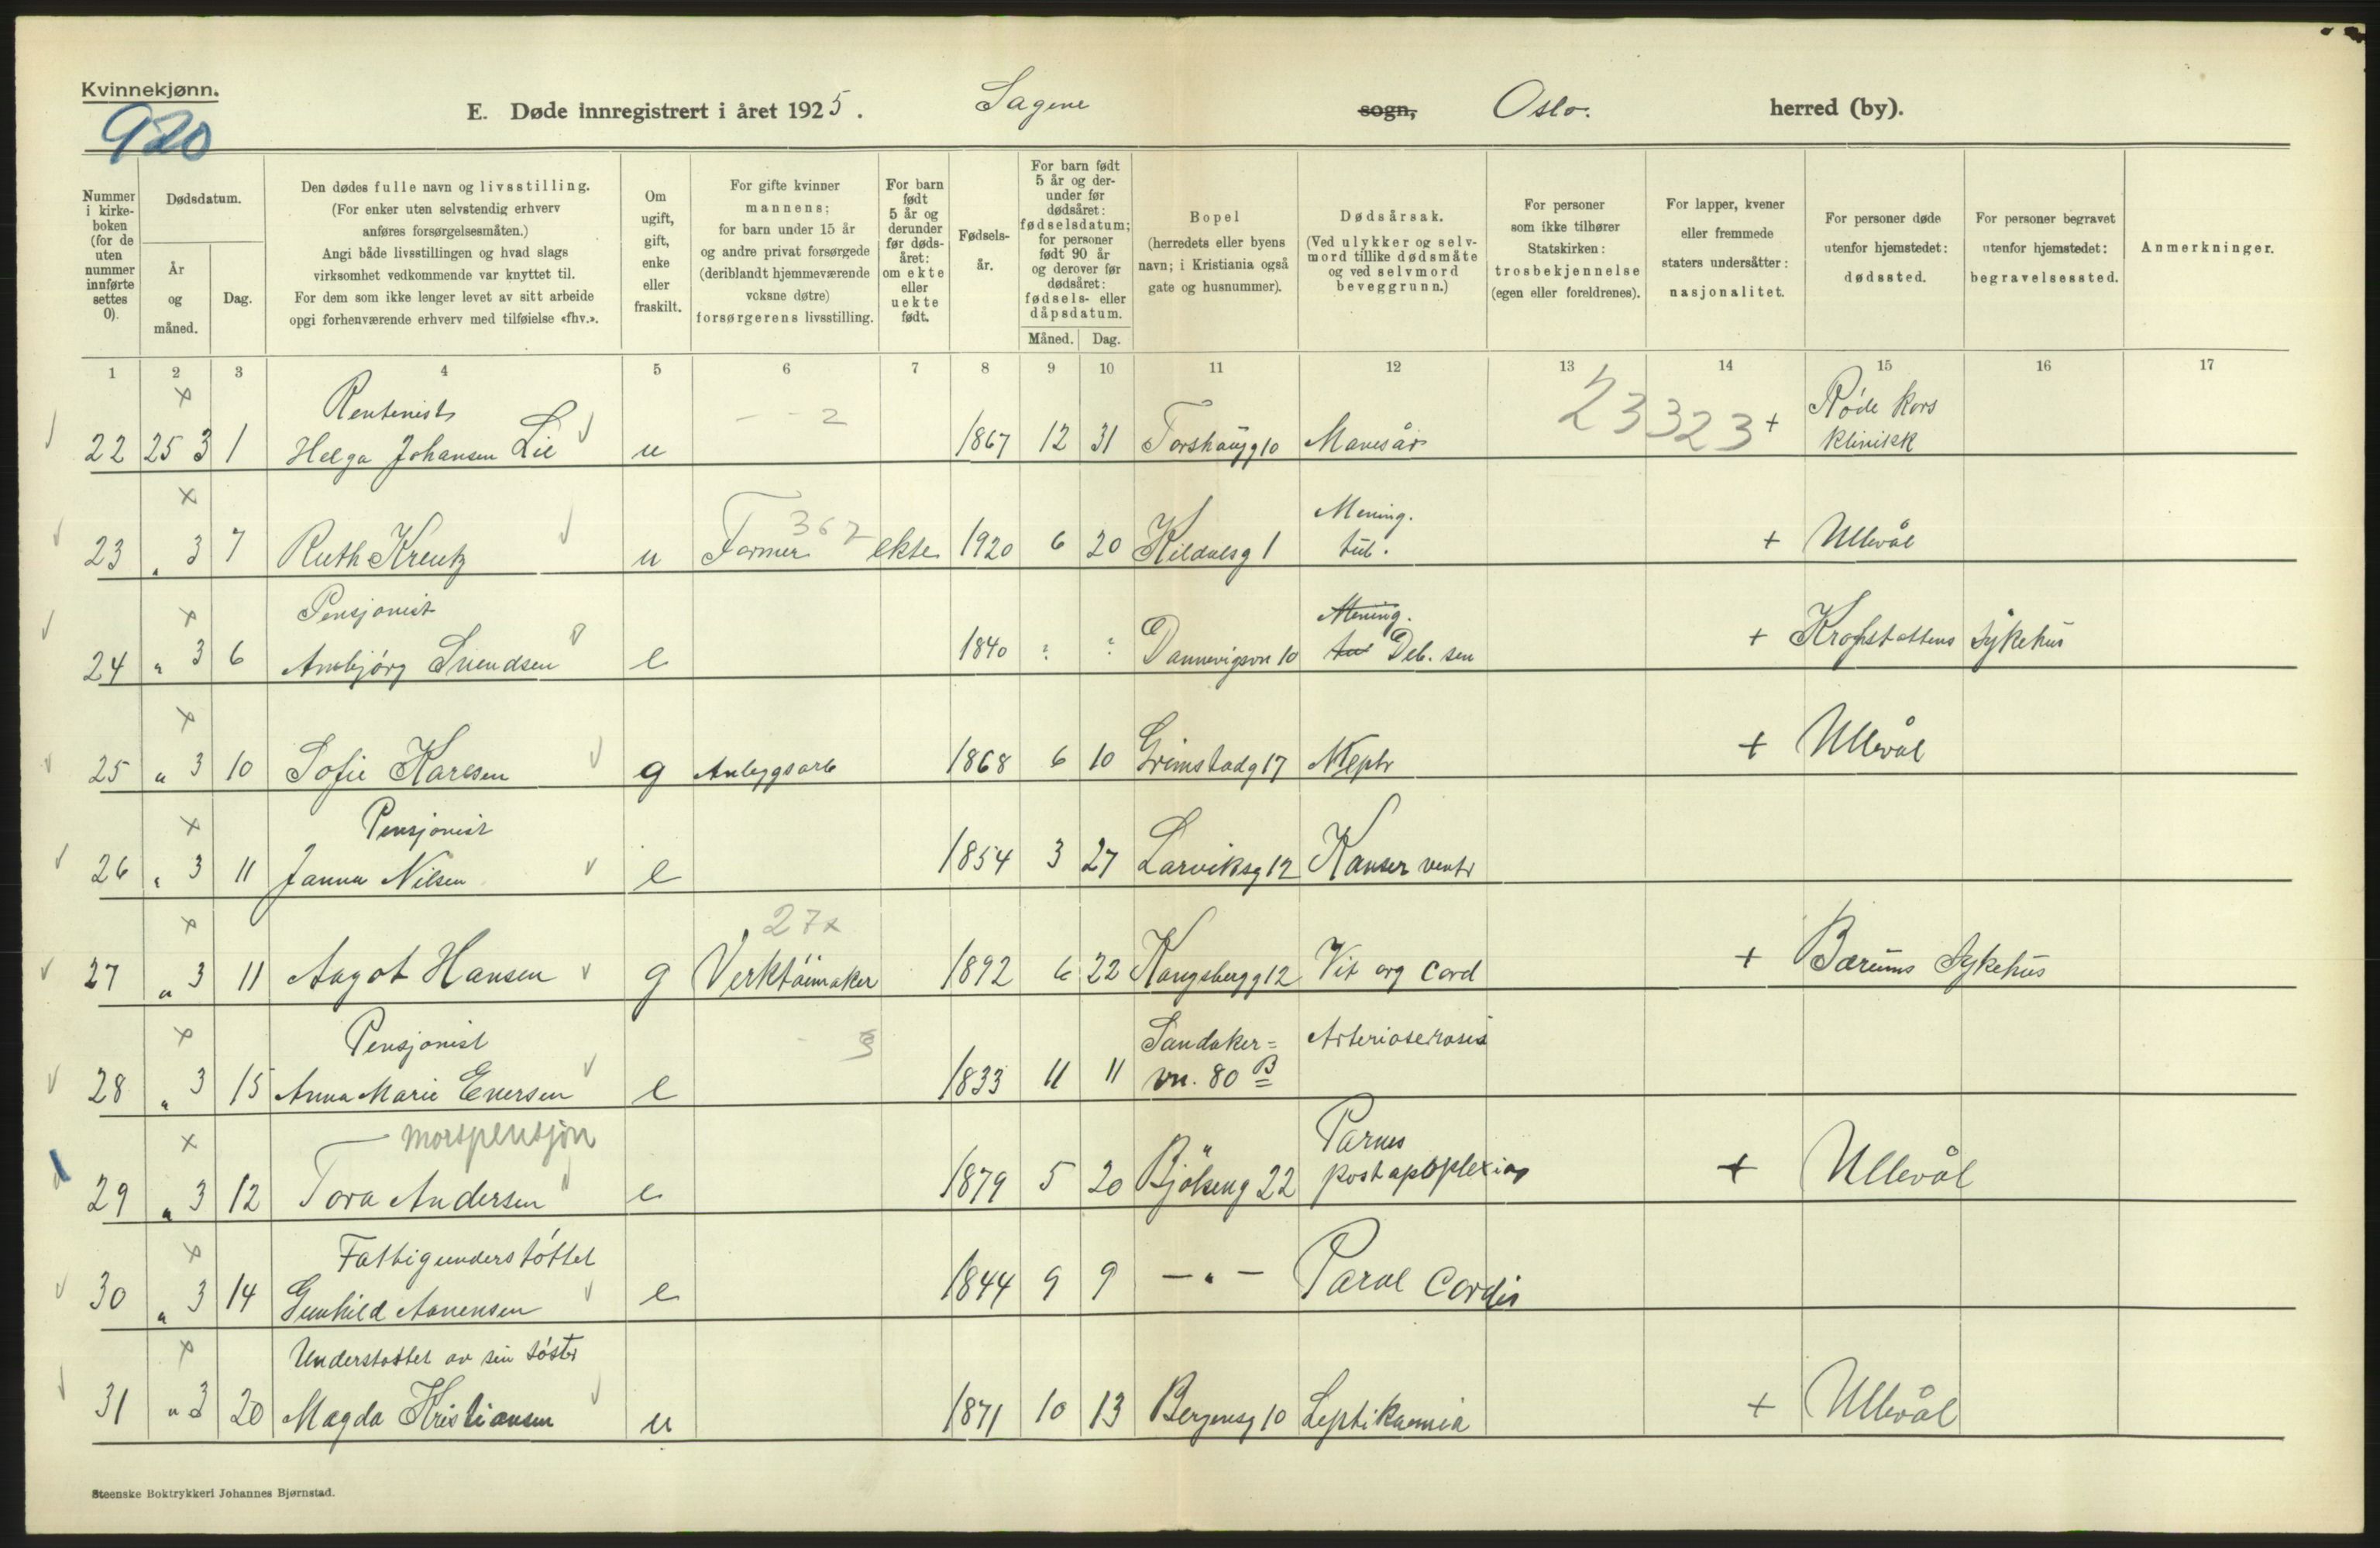 Kvinnekjønn.
920
E. Døde innregistrert i året 1925. Sagene sogn, Oslo. herred (by).
Nummer i kirke- boken (for de uten nummer innførte settes 0).
Dødsdatum.
År og måned.
Dag.
Den dødes fulle navn og livsstilling.
(For enker uten selvstendig erhverv
anføres forsørgelsesmåten.)
Angi både livsstillingen og hvad slags
virksomhet vedkommende var knyttet til.
For dem som ikke lenger levet av sitt arbeide
opgi forhenværende erhverv med tilføielse «fhv.».
Om ugift, gift, enke eller fraskilt.
For gifte kvinner
mannens;
for barn under 15 år
og andre privat forsørgede
(deriblandt hjemmeværende
voksne døtre)
forsørgerens livsstilling.
For barn født 5 år og derunder før døds- året: om ekte eller uekte født.
Fødsels- år.
For barn født 5 år og der- under før dødsåret: fødselsdatum; for personer født 90 år og derover før dødsåret: fødsels- eller dåpsdatum.
Måned. Dag.
Bopel
(herredets eller byens
navn; i Kristiania også
gate og husnummer).
Dødsårsak.
(Ved ulykker og selv-
mord tillike dødsmåte
og ved selvmord
beveggrunn.)
For personer
som ikke tilhører
Statskirken:
trosbekjennelse
(egen eller foreldrenes).
For lapper, kvener
eller fremmede
staters undersåtter:
nasjonalitet.
For personer døde
utenfor hjemstedet:
dødssted.
For personer begravet
utenfor hjemstedet:
begravelsessted.
Anmerkninger.
1 2 3 4 5 6 7 8 9 10 11 12 13 14 15 16 17
x Rentenist - - 2 23323 + Røde Kors
22 25 3 1 Helga Johansen Lie u 1867 12 31 Torshaugg 10 Klinikk
x 367 Mening.
23 " 3 7 Ruth Kreutz u Former ekte 1920 6 20 Kildalsg 1 tub. + Ullevål
x Pensjonist Mening.
24 " 3 6 Svendsen e 1840 ? ? Dannevigsvn 10 tub Deb. sen + Sykehus
x
25 " 3 10 Sofie Karlsen g Anleggsarb 1868 6 10 Grimstadg 17 Nephr + Ullevål
x Pensjonist
26 " 3 11 Janna Nilsen e 1854 3 27 Larviksg 12 Kanser ventr
x 27x
27 " 3 11 Aagot Hansen g Verktøimaker 1892 6 22 Kongsbergg 12 Vit org cord + Bærums Sykehus
x Pensjonist 3 Sandaker=
28 " 3 15 Anna Marie Eversen e 1833 11 11 vn. 80 B
x morspensjon
29 " 3 12 Tora Andersen e 1879 5 20 Bjølseng 22 post apoplexian + Ullevål
x Fattigunderstøttet
30 " 3 14 Gunhild Aanensen e 1844 9 9 — " — Paral Cordis
x Understøttet av sin søster
31 " 3 20 Magda Kristiansen u 1871 10 13 Bergensg 10 Septikaemia + Ullevål
Steenske Boktrykkeri Johannes Bjørnstad.